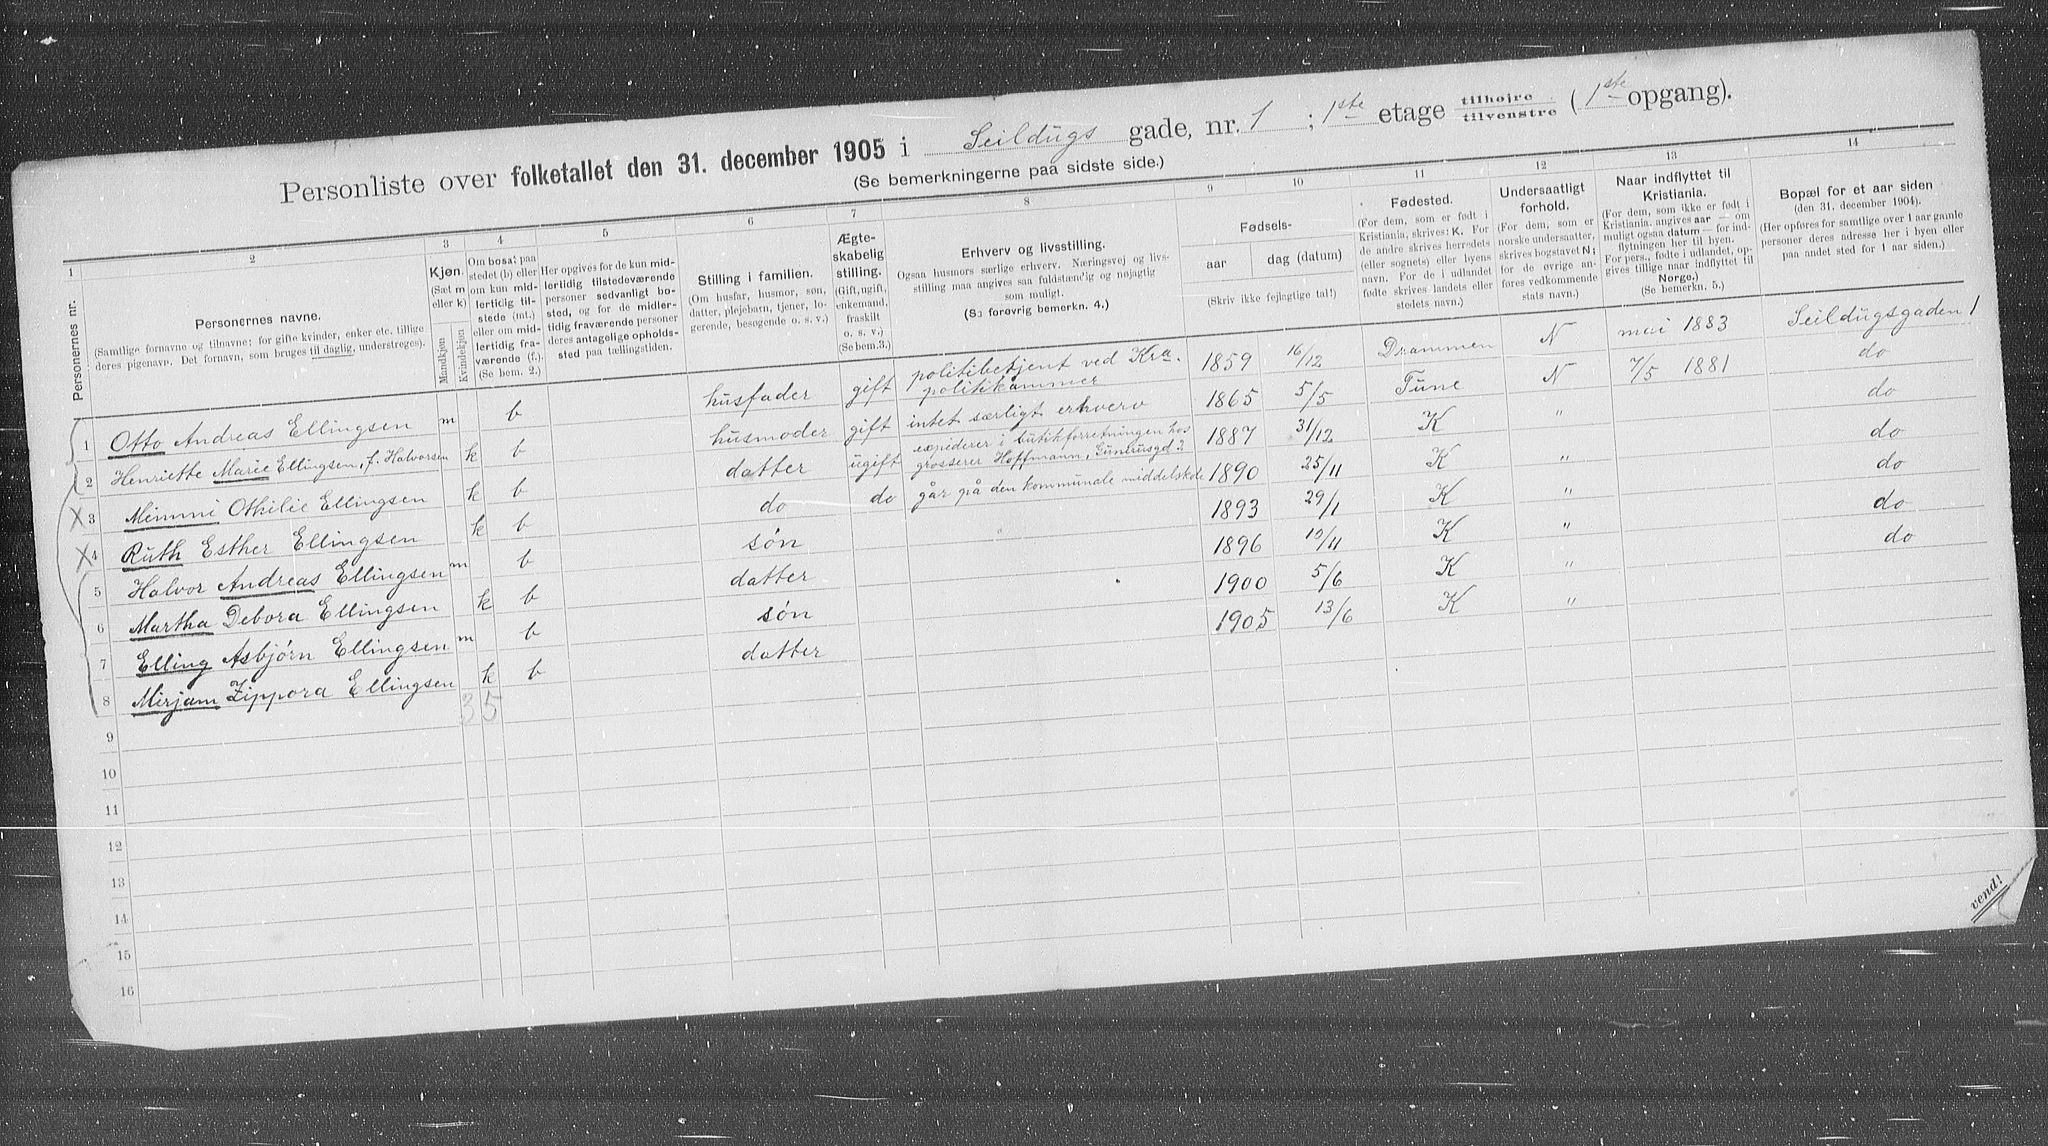 Personliste over folketallet den 31. december 1905 i Seildugs gade, nr. 1 ; 1ste etage tilhøjre tilvenstre ( 1ste opgang).
(Se bemerkningerne paa sidste side.)
1 2 3 4 5 6 7 8 9 10 11 12 13 14
Personernes nr.
Personernes navne.
(Samtlige fornavne og tilnavne; for gifte kvinder, enker etc. tillige
deres pigenavn. Det fornavn, som bruges til daglig, understreges).
Kjøn.
(Sæt m
eller k)
Mandkjøn
Kvindekjøn
Om bosat paa
stedet (b) eller
om kun mid-
lertidig til-
stede (mt.)
eller om mid-
lertidig fra-
værende (f.).
(Se bem. 2.)
Her opgives for de kun mid-
lertidig tilstedeværende
personer sedvanligt bo-
sted, og for de midler-
tidig fraværende personer
deres antagelige opholds-
sted paa tællingstiden.
Stilling i familien.
(Om husfar, husmor, søn,
datter, plejebarn, tjener, lo-
gerende, besøgende o. s. v.)
Ægte-
skabelig
stilling.
(Gift, ugift,
enkemand,
fraskilt
o. s. v.)
(Se bem.3.)
Erhverv og livsstilling.
Ogsaa husmors særlige erhverv. Næringsvej og livs-
stilling maa angives saa fuldstændig og nøjagtig
som muligt.
(Se forøvrig bemerkn. 4.)
Fødsels-
aar dag (datum)
(Skriv ikke fejlagtige tal!)
Fødested.
(For dem, som er født i
Kristiania, skrives: K. For
de andre skrives herredets
(eller sognets) eller byens
navn. For de i udlandet
fødte skrives landets eller
stedets navn.)
Undersaatligt
forhold.
(For dem, som er
norske undersaatter,
skrives bogstavet N;
for de øvrige an-
føres vedkommende
stats navn.)
Naar indflyttet til
Kristiania.
(For dem, som ikke er født i
Kristiania, angives aar — om
muligt ogsaa datum — for ind-
flytningen her til byen.
For pers., fødte i udlandet, op-
gives tillige naar indflyttet til
Norge.)
(Se bemerkn. 5.)
Bopæl for et aar siden
(den 31. december 1904).
(Her opføres for samtlige over 1 aar gamle
personer deres adresse her i byen eller
paa andet sted for 1 aar siden.)
1 Otto Andreas Ellingsen m b husfader gift politibetjent ved Kra. politikammer 1859 16/12 Drammen N mai 1883 Seildugsgaden 1
2 Henriette Marie Ellingsen, f. Halvorsen k b husmoder gift intet særligt erhverv 1865 5/5 Tune N 7/5 1881 do
X 3 Mimmi Othilie Ellingsen k b datter ugift expiderer i butikforretningen hos grosserer Hoffmann, 2 1887 31/12 K " do
X 4 Ruth Esther Ellingsen k b do do går på den kommunale middelskole 1890 25/11 K " do
5 Halvor Andreas Ellingsen m b søn 1893 29/1 K " do
6 Martha Debora Ellingsen k b datter 1896 10/11 K " do
7 Elling Asbjørn Ellingsen m b søn 1900 5/6 K " do
8 Mirjam Zippora Ellingsen k b datter 1905 13/6 K "
3 5
9
10
11
12
13
14
15
16
vend!